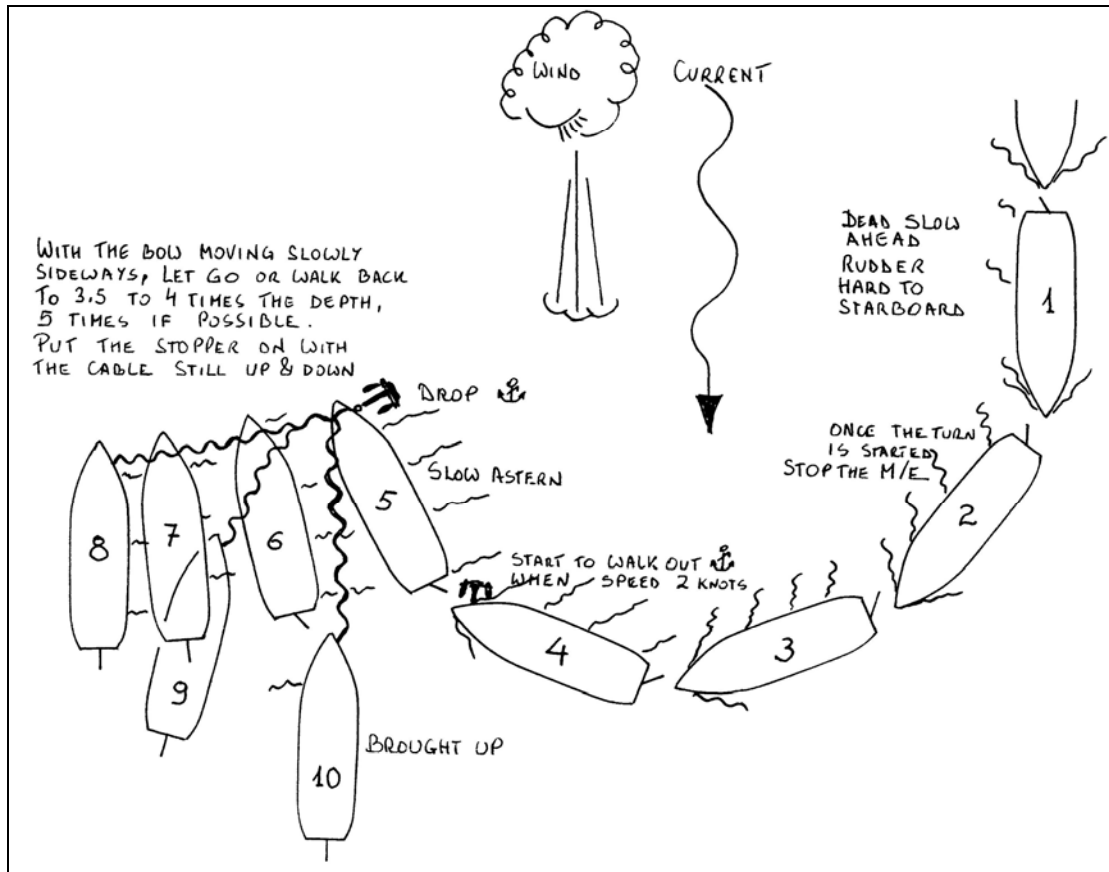 WIND
CURRENT
DEAD SLOW
AHEAD
RUDDER
HARD TO
STARBOARD
1
WITH THE BOW MOVING SLOWLY
SIDEWAYS, LET GO OR WALK BACK
TO 3.5 TO 4 TIMES THE DEPTH,
5 TIMES IF POSSIBLE.
PUT THE STOPPER ON WITH
THE CABLE STILL UP & DOWN
DROP
SLOW ASTERN
ONCE THE TURN
IS STARTED
STOP THE M/E
2
START TO WALK OUT
WHEN SPEED 2 KNOTS
3
4
5
6
7
8
9
10
BROUGHT UP